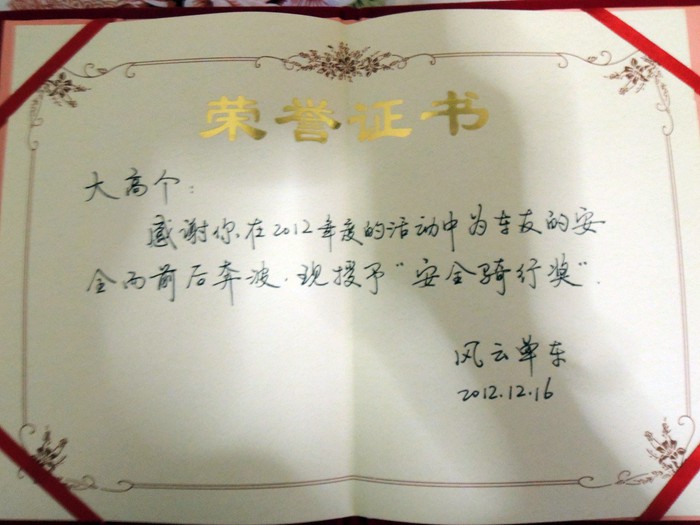 荣誉证书
大高个：
感谢你在2012年度的活动中为车友的安
全而前后奔波.现授予"安全骑行奖".
风云单车
2012.12.16